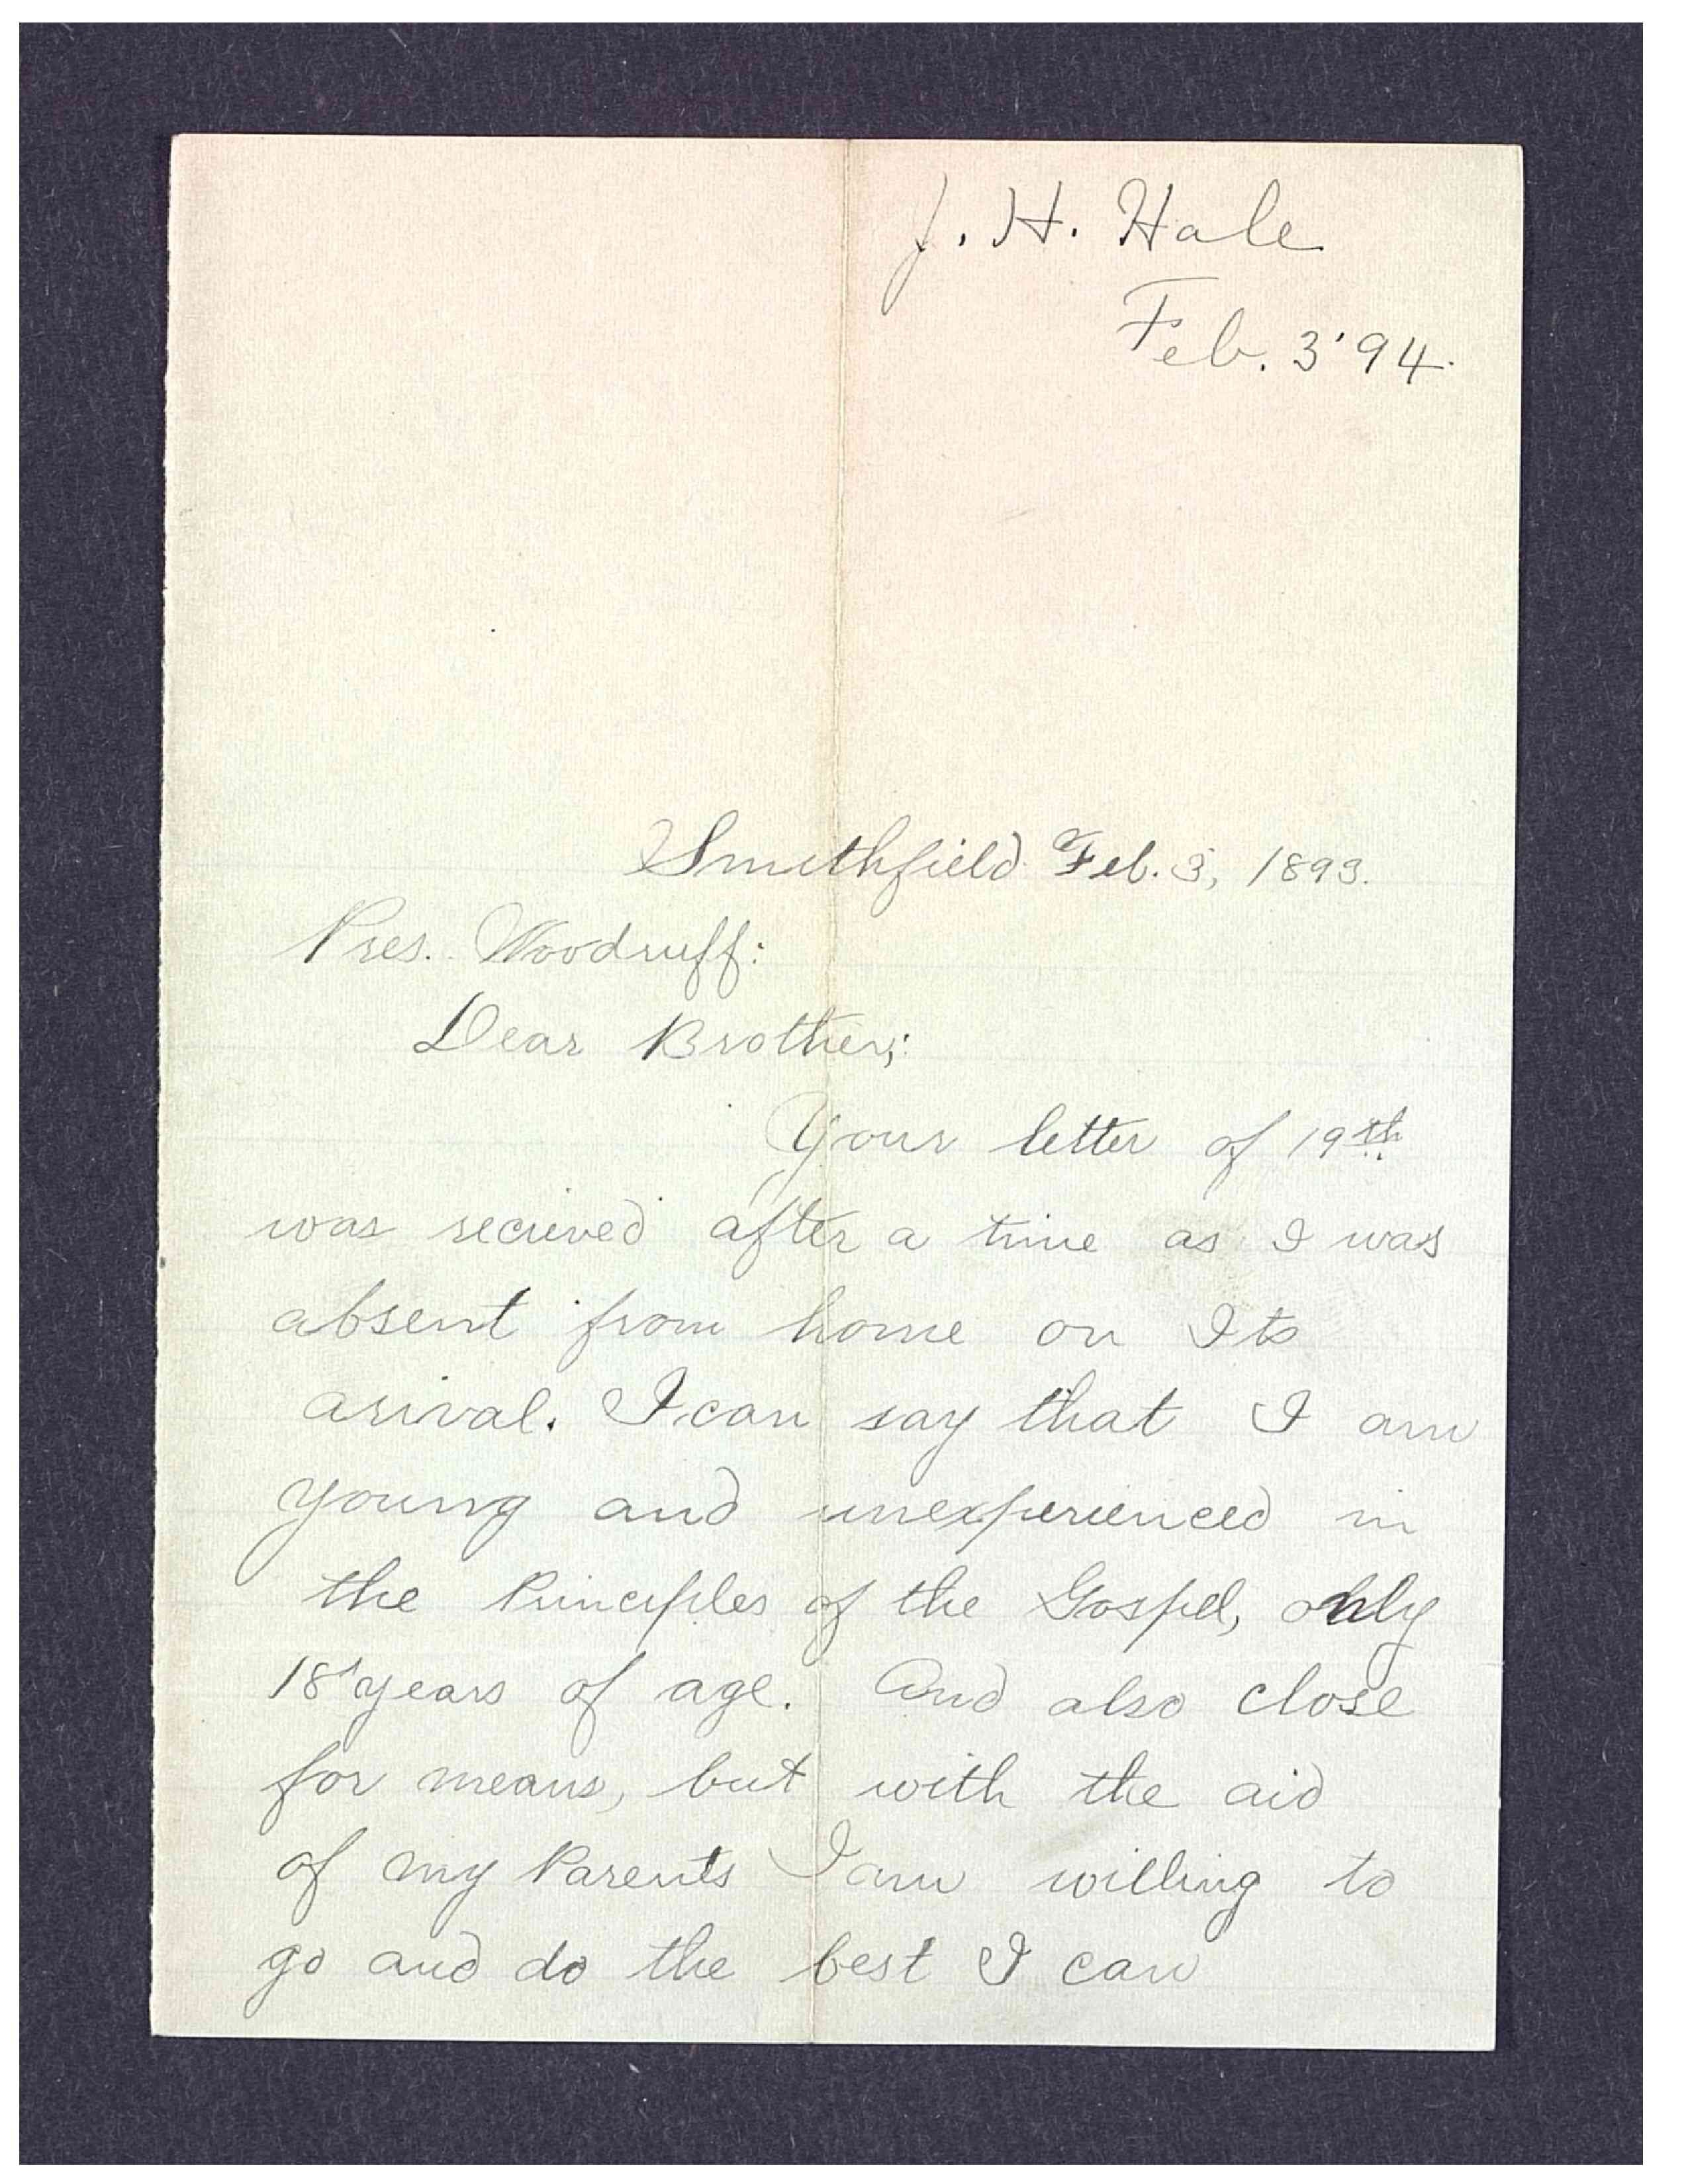 J. H. Hale
Feb. 3'94.
Smithfield Feb. 3, 1893.
Pres. Woodruff:
Dear Brother;:
Your letter of 19th
was recieved after a time as I was
absent from home on Its
arival. I can say that I am
young and unexperienced in
the Principles of the Gospel, only
18 years of age. And also close
for means, but with the aid
of my Parents I am willing to
go and do the best I can